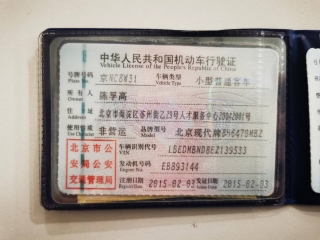 中华人民共和国机动车行驶证
Vehicle License of the People's Republic of China
号牌号码 京NC8W31 车辆类型 小型普通客车
Plate No. Vehicle Type
所有人 陈孚高
Owner
住址 北京市海淀区苏州街乙29号人才服务中心20042001号
Address
使用性质 非营运 品牌型号 北京现代牌BH6470MBZ
Use Character Model
北京市公 车辆识别代号
安局公安 VIN
交通管理局 发动机号码 EB893144
Engine No.
注册日期 2015-02-03 发证日期 2015-02-03
Register Date Issue Date